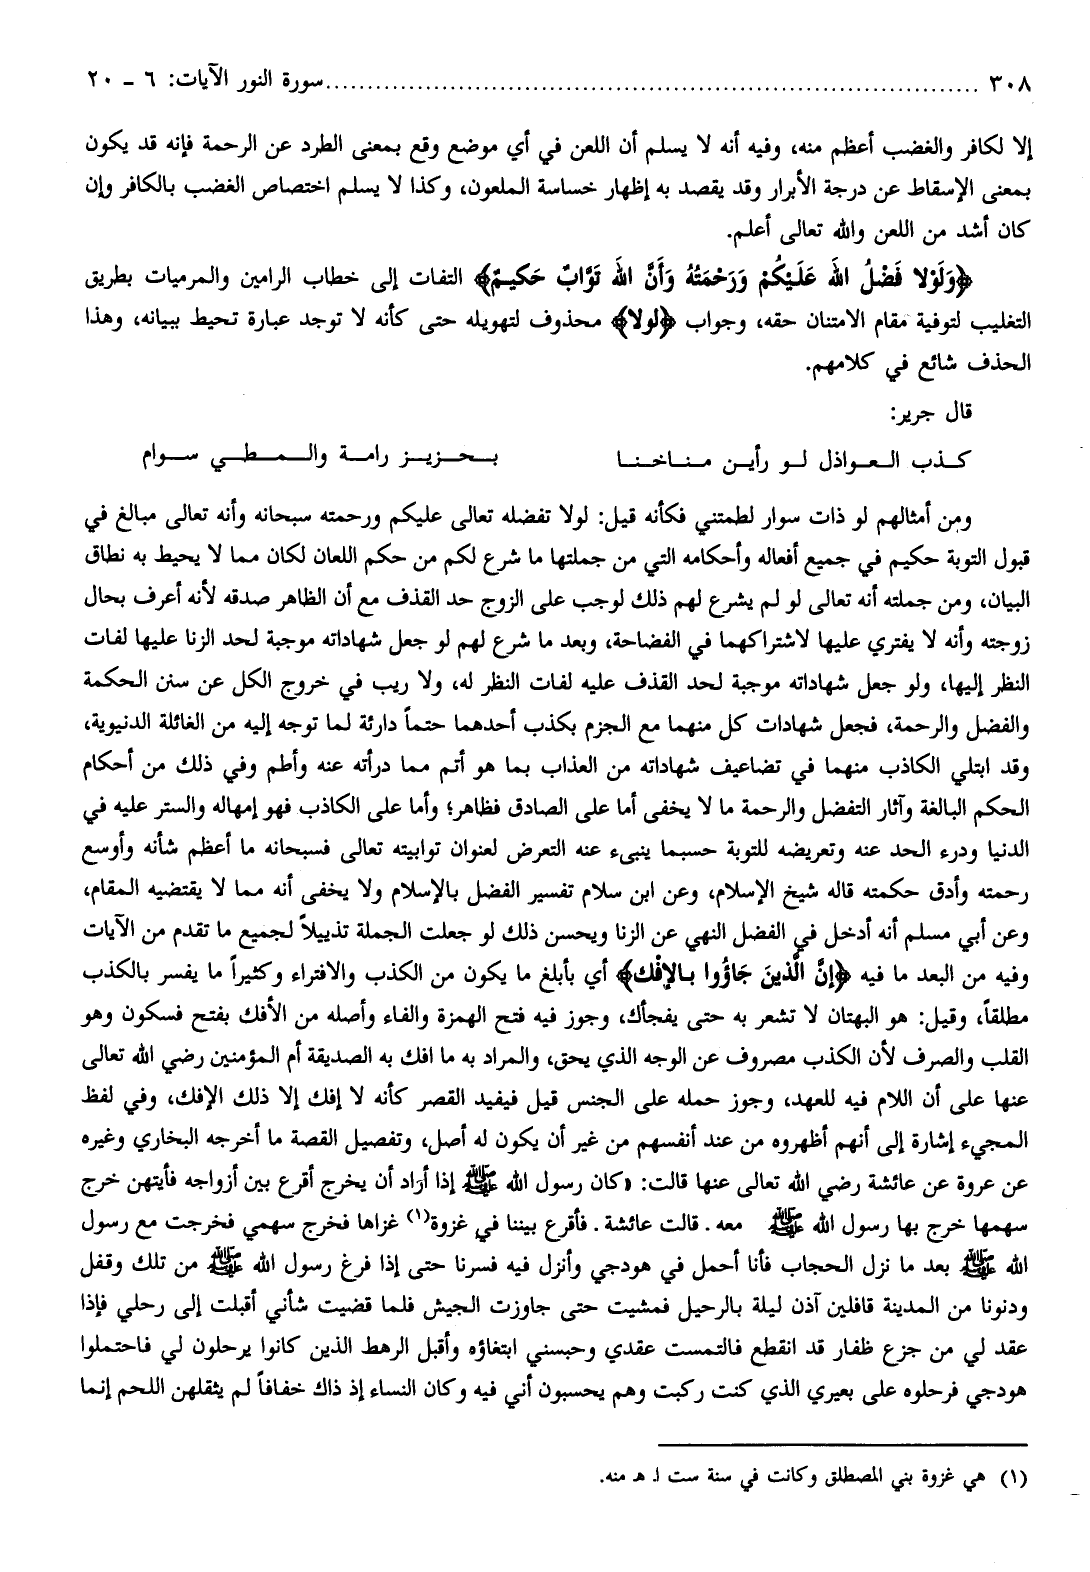 ٣٠٨ ........................................................ سورة النور الآيات: ٦ ـ ٢٠
إلا لكافر والغضب أعظم منه، وفيه أنه لا يسلم أن اللعن في أي موضع وقع بمعنى الطرد عن الرحمة فإنه قد يكون
بمعنى الإسقاط عن درجة الأبرار وقد يقصد به إظهار خساسة الملعون، وكذا لا يسلم اختصاص الغضب بالكافر وإن
كان أشد من اللعن والله تعالى أعلم.
﴿وَلَوْلا فَضْلُ اللهِ عَلَيْكُمْ وَرَحْمَتُهُ وَأَنَّ اللهَ تَوَّابٌ حَكيمٌ﴾ التفات إلى خطاب الرامين والمرميات بطريق
التغليب لتوفية مقام الامتنان حقه، وجواب ﴿لولا﴾ محذوف لتهويله حتى كأنه لا توجد عبارة تحيط ببيانه، وهذا
الحذف شائع في كلامهم.
قال جرير:
كذب العواذل لو رأين مناخنا بحزيز رامة والمطي سوام
ومن أمثالهم لو ذات سوار لطمتني فكأنه قيل: لولا تفضله تعالى عليكم ورحمته سبحانه وأنه تعالى مبالغ في
قبول التوبة حكيم في جميع أفعاله وأحكامه التي من جملتها ما شرع لكم من حكم اللعان لكان مما لا يحيط به نطاق
البيان، ومن جملته أنه تعالى لو لم يشرع لهم ذلك لوجب على الزوج حد القذف مع أن الظاهر صدقه لأنه أعرف بحال
زوجته وأنه لا يفتري عليها لاشتراكهما في الفضاحة، وبعد ما شرع لهم لو جعل شهاداته موجبة لحد الزنا عليها لفات
النظر إليها، ولو جعل شهاداته موجبة لحد القذف عليه لفات النظر له، ولا ريب في خروج الكل عن سنن الحكمة
والفضل والرحمة، فجعل شهادات كل منهما مع الجزم بكذب أحدهما حتماً دارئة لما توجه إليه من الغائلة الدنيوية،
وقد ابتلي الكاذب منهما في تضاعيف شهاداته من العذاب بما هو أتم مما درأته عنه وأطم وفي ذلك من أحكام
الحكم البالغة وآثار التفضل والرحمة ما لا يخفى أما على الصادق فظاهر؛ وأما على الكاذب فهو إمهاله والستر عليه في
الدنيا ودرء الحد عنه وتعريضه للتوبة حسبما ينبىء عنه التعرض لعنوان توابيته تعالى فسبحانه ما أعظم شأنه وأوسع
رحمته وأدق حكمته قاله شيخ الإسلام، وعن ابن سلام تفسير الفضل بالإسلام ولا يخفى أنه مما لا يقتضيه المقام،
وعن أبي مسلم أنه أدخل في الفضل النهي عن الزنا ويحسن ذلك لو جعلت الجملة تذييلاً لجميع ما تقدم من الآيات
وفيه من البعد ما فيه ﴿إنَّ الَّذينَ جَاؤُوا بالإفْك﴾ أي بأبلغ ما يكون من الكذب والافتراء وكثيراً ما يفسر بالكذب
مطلقاً، وقيل: هو البهتان لا تشعر به حتى يفجأك، وجوز فيه فتح الهمزة والفاء وأصله من الأفك بفتح فسكون وهو
القلب والصرف لأن الكذب مصروف عن الوجه الذي يحق، والمراد به ما افك به الصديقة أم المؤمنين رضي الله تعالى
عنها على أن اللام فيه للعهد، وجوز حمله على الجنس قيل فيفيد القصر كأنه لا إفك إلا ذلك الإفك، وفي لفظ
المجيء إشارة إلى أنهم أظهروه من عند أنفسهم من غير أن يكون له أصل، وتفصيل القصة ما أخرجه البخاري وغيره
عن عروة عن عائشة رضي الله تعالى عنها قالت: «كان رسول الله ﷺ إذا أراد أن يخرج أقرع بين أزواجه فأيتهن خرج
سهمها خرج بها رسول الله ﷺ معه. قالت عائشة. فأقرع بيننا في غزوة(١) غزاها فخرج سهمي فخرجت مع رسول
الله ﷺ بعد ما نزل الحجاب فأنا أحمل في هودجي وأنزل فيه فسرنا حتى إذا فرغ رسول الله ﷺ من تلك وقفل
ودنونا من المدينة قافلين آذن ليلة بالرحيل فمشيت حتى جاوزت الجيش فلما قضيت شأني أقبلت إلى رحلي فإذا
عقد لي من جزع ظفار قد انقطع فالتمست عقدي وحبسني ابتغاؤه وأقبل الرهط الذين كانوا يرحلون لي فاحتملوا
هودجي فرحلوه على بعيري الذي كنت ركبت وهم يحسبون أني فيه وكان النساء إذ ذاك خفافاً لم يثقلهن اللحم إنما
(١) هي غزوة بني المصطلق وكانت في سنة ست ا. هـ منه.